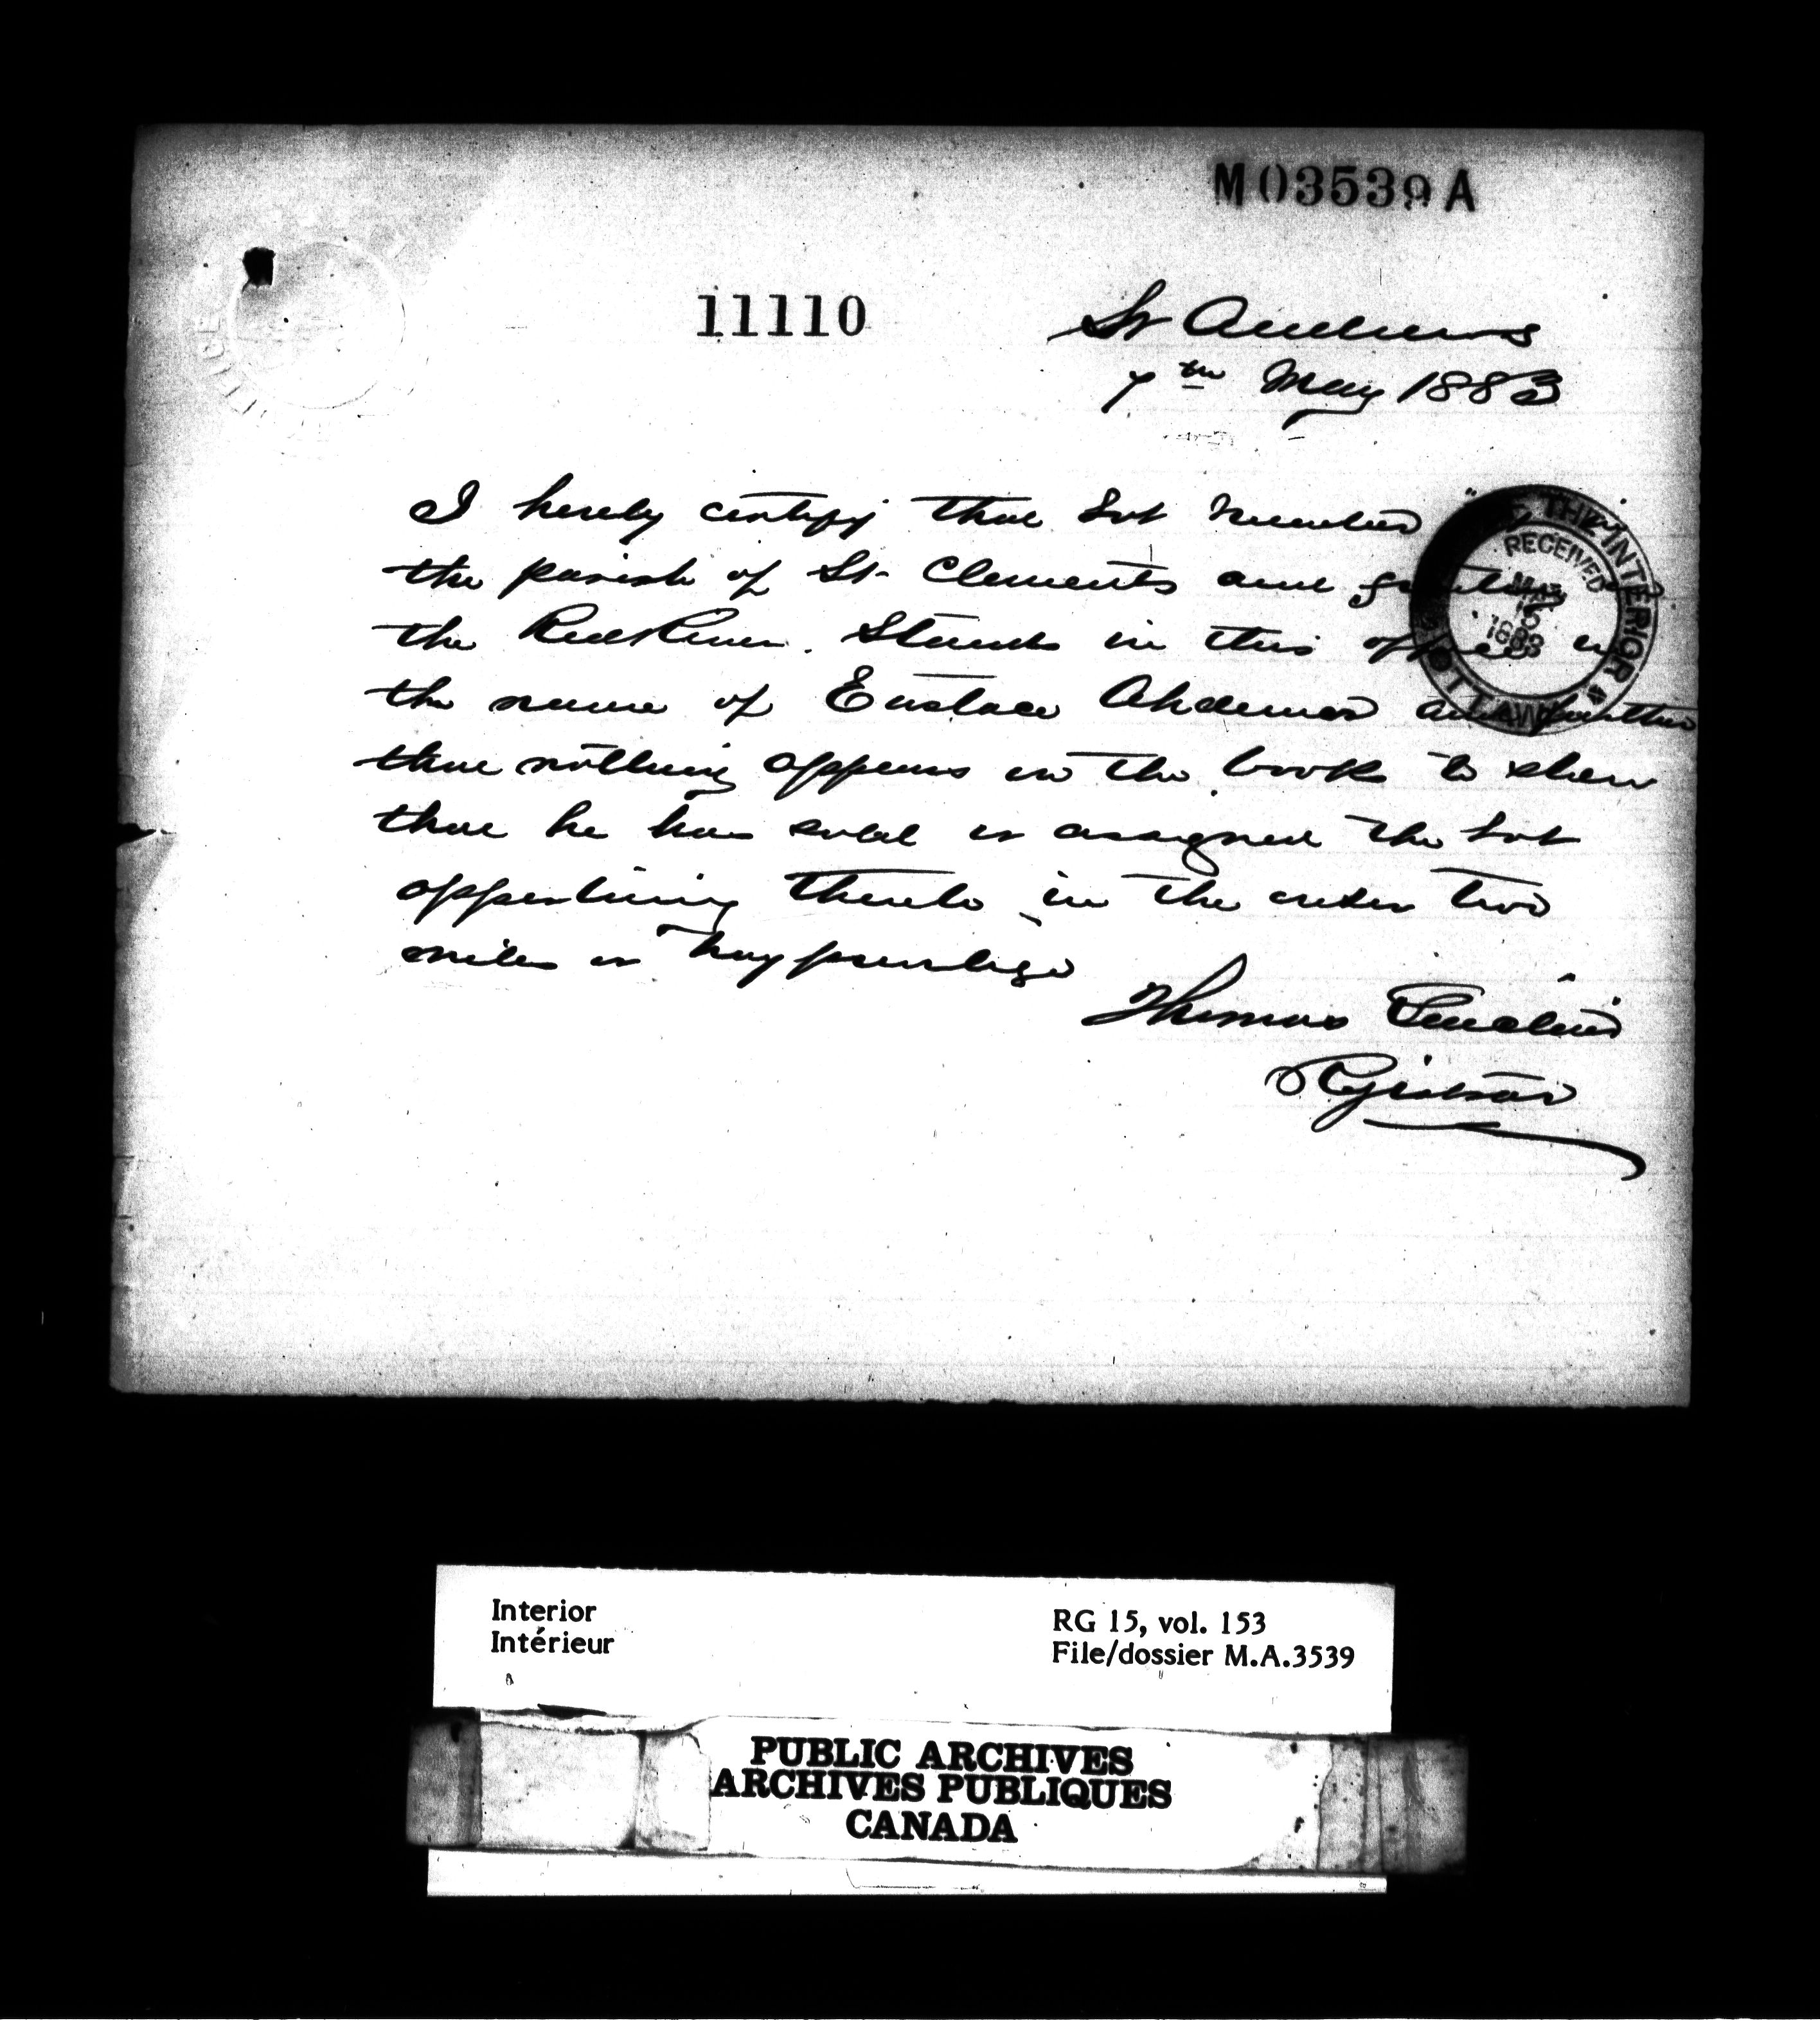 M03539A
11110
St Andrews
7th May 1883
I hereby certify that Lot Number
the parish of St Clements and fronting
the Red River. Stands in this office in
the name of Eustace and further
that nothing appears in the book to shew
that he has sold or assigned the Lot
appertaining thereto in the outer two
miles or hay privilege
Thomas Sinclair
Registrar
THE INTERIOR
RECEIVED
MAY
15
1883
OTTAWA
Interior
Intérieur
RG 15, vol. 153
File/dossier M.A.3539
PUBLIC ARCHIVES
ARCHIVES PUBLIQUES
CANADA